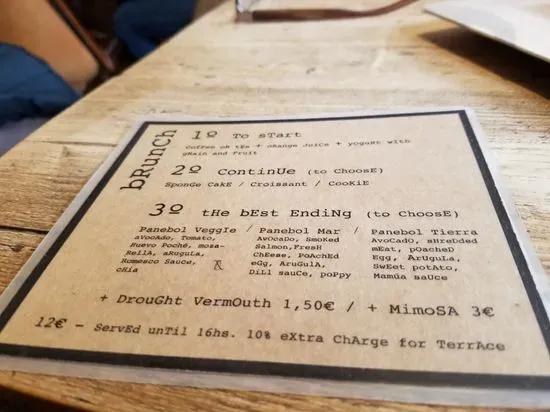 bRunCh
1º To sTart
Coffee oR tEs + oRange JuiCe + yoguRt with
gRain and Fruit
2º ContinUe (to ChoosE)
SponGe CakE / Croissant / CooKiE
3º tHe bEst EndiNg (to ChoosE)
Panebol VeggIe / Panebol Mar / Panebol Tierra
avocAdo, Tomato,
Huevo Poché, moza-
RellA, aRugulA,
Romesco Sauce,
cHia
AvoCaDo, SmoKed
Salmon,FresH
ChEese, PoAchEd
eGg, AruGulA,
DiLl sauCe, poPpy
AvoCadO, sHredDed
mEat, pOacheD
Egg, ArUguLa,
SwEet potAto,
Mamúa saUce
+ DrouGht VermOuth 1,50€ / + MimoSA 3€
12€ - ServEd unTil 16hs. 10% eXtra ChArge for TerrAce